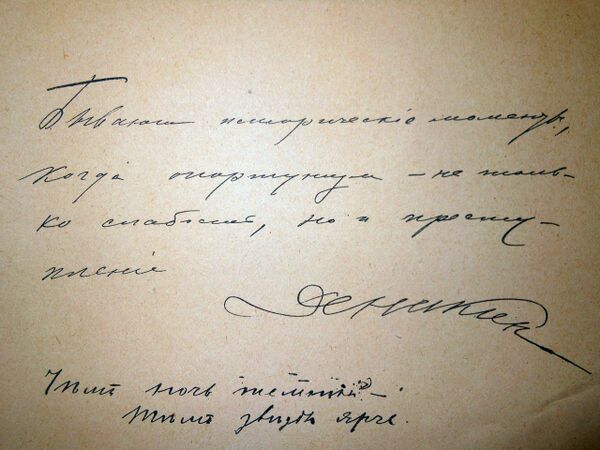 Бываютъ историческіе моменты,
когда опортунизм – не толь-
ко слабость, но и престу-
пленіе
Деникин
Чѣмъ ночь темнѣй –
Тѣмъ звѣзды ярче.